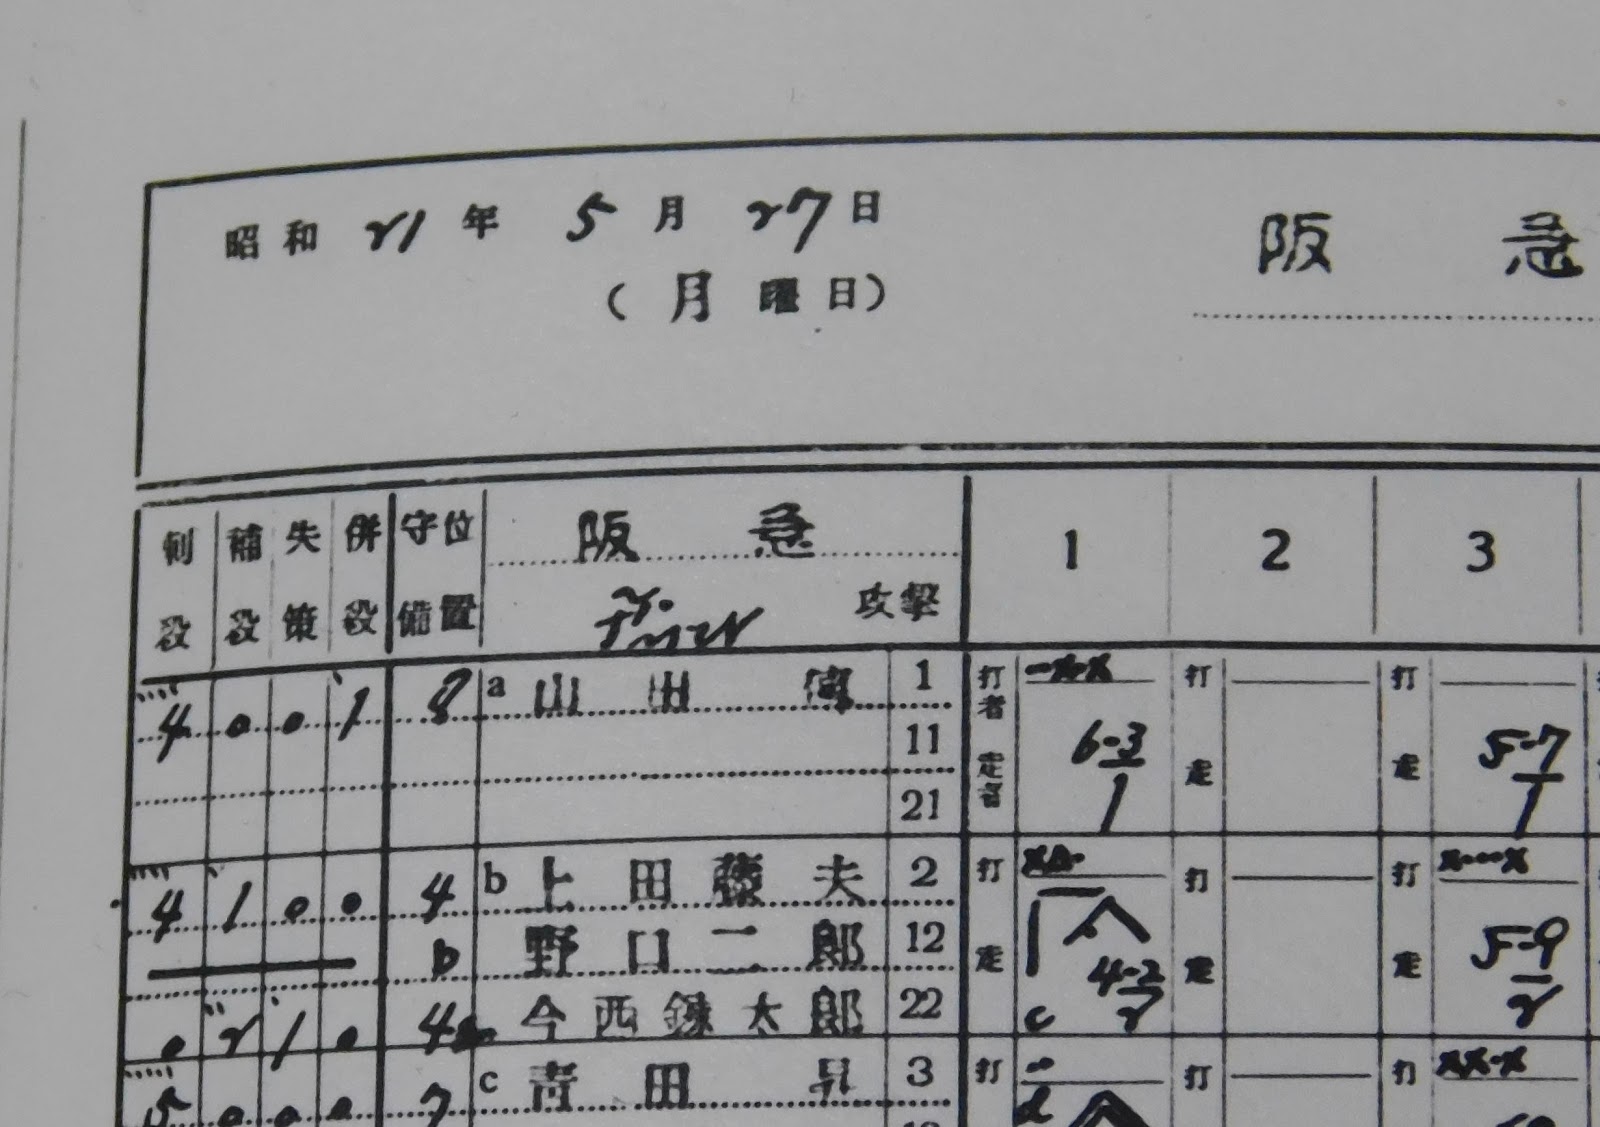 昭和 21 年 5 月 27 日
(月曜日)
阪急
刺殺 補殺 失策 併殺 守備位置 阪急 攻撃 1 2 3
4 0 0 1 8 a 山田傳 1 打者 打 打
6-3 5-7
11 走者 走 走
1 1
21
4 1 0 0 4 b 上田藤夫 2 打 打 打
b 野口二郎 12 走 4-2 走 走 5-9
0 2 1 0 4 今西錬太郎 22 c 2 2
5 0 0 0 7 c 青田昇 3 打 打 打
d